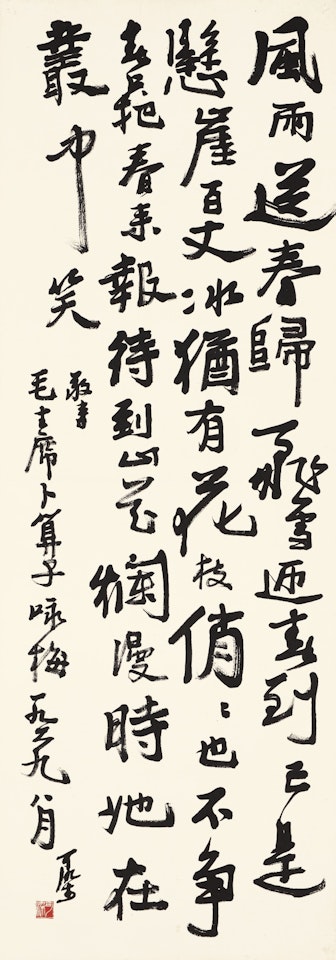 風雨送春歸飛雪迎春到已是
懸崖百丈冰猶有花枝俏〻也不争
春只把春来報待到山花爛漫時她在
叢中笑
敬書
毛主席卜算子咏梅一九六九八月